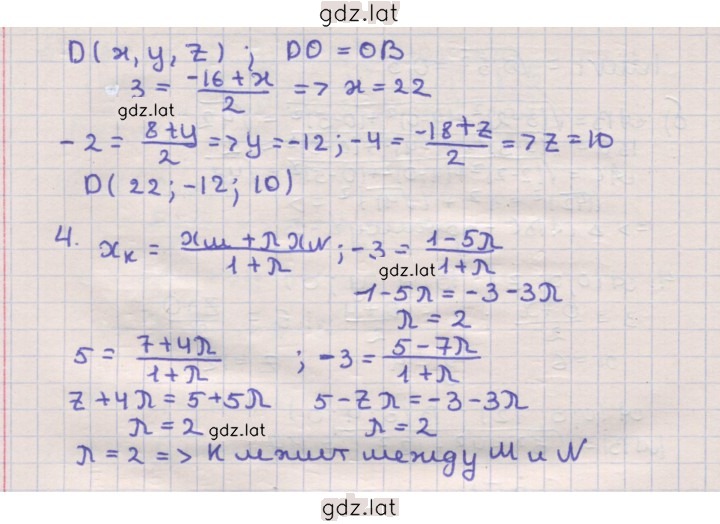 gdz.lat
D(x, y, z); DO = OB
3 = (-16+x)/2 => x = 22
gdz.lat
-2 = (8+y)/2 => y = -12; -4 = (-18+z)/2 => z = 10
D(22; -12; 10)
4. xк = (xм + λxN)/(1+λ); -3 = (1-5λ)/(1+λ)
gdz.lat
1-5λ = -3-3λ
λ = 2
5 = (7+4λ)/(1+λ); -3 = (5-7λ)/(1+λ)
7+4λ = 5+5λ 5-7λ = -3-3λ
λ = 2 gdz.lat λ = 2
λ = 2 => K лежит между M и N
gdz.lat